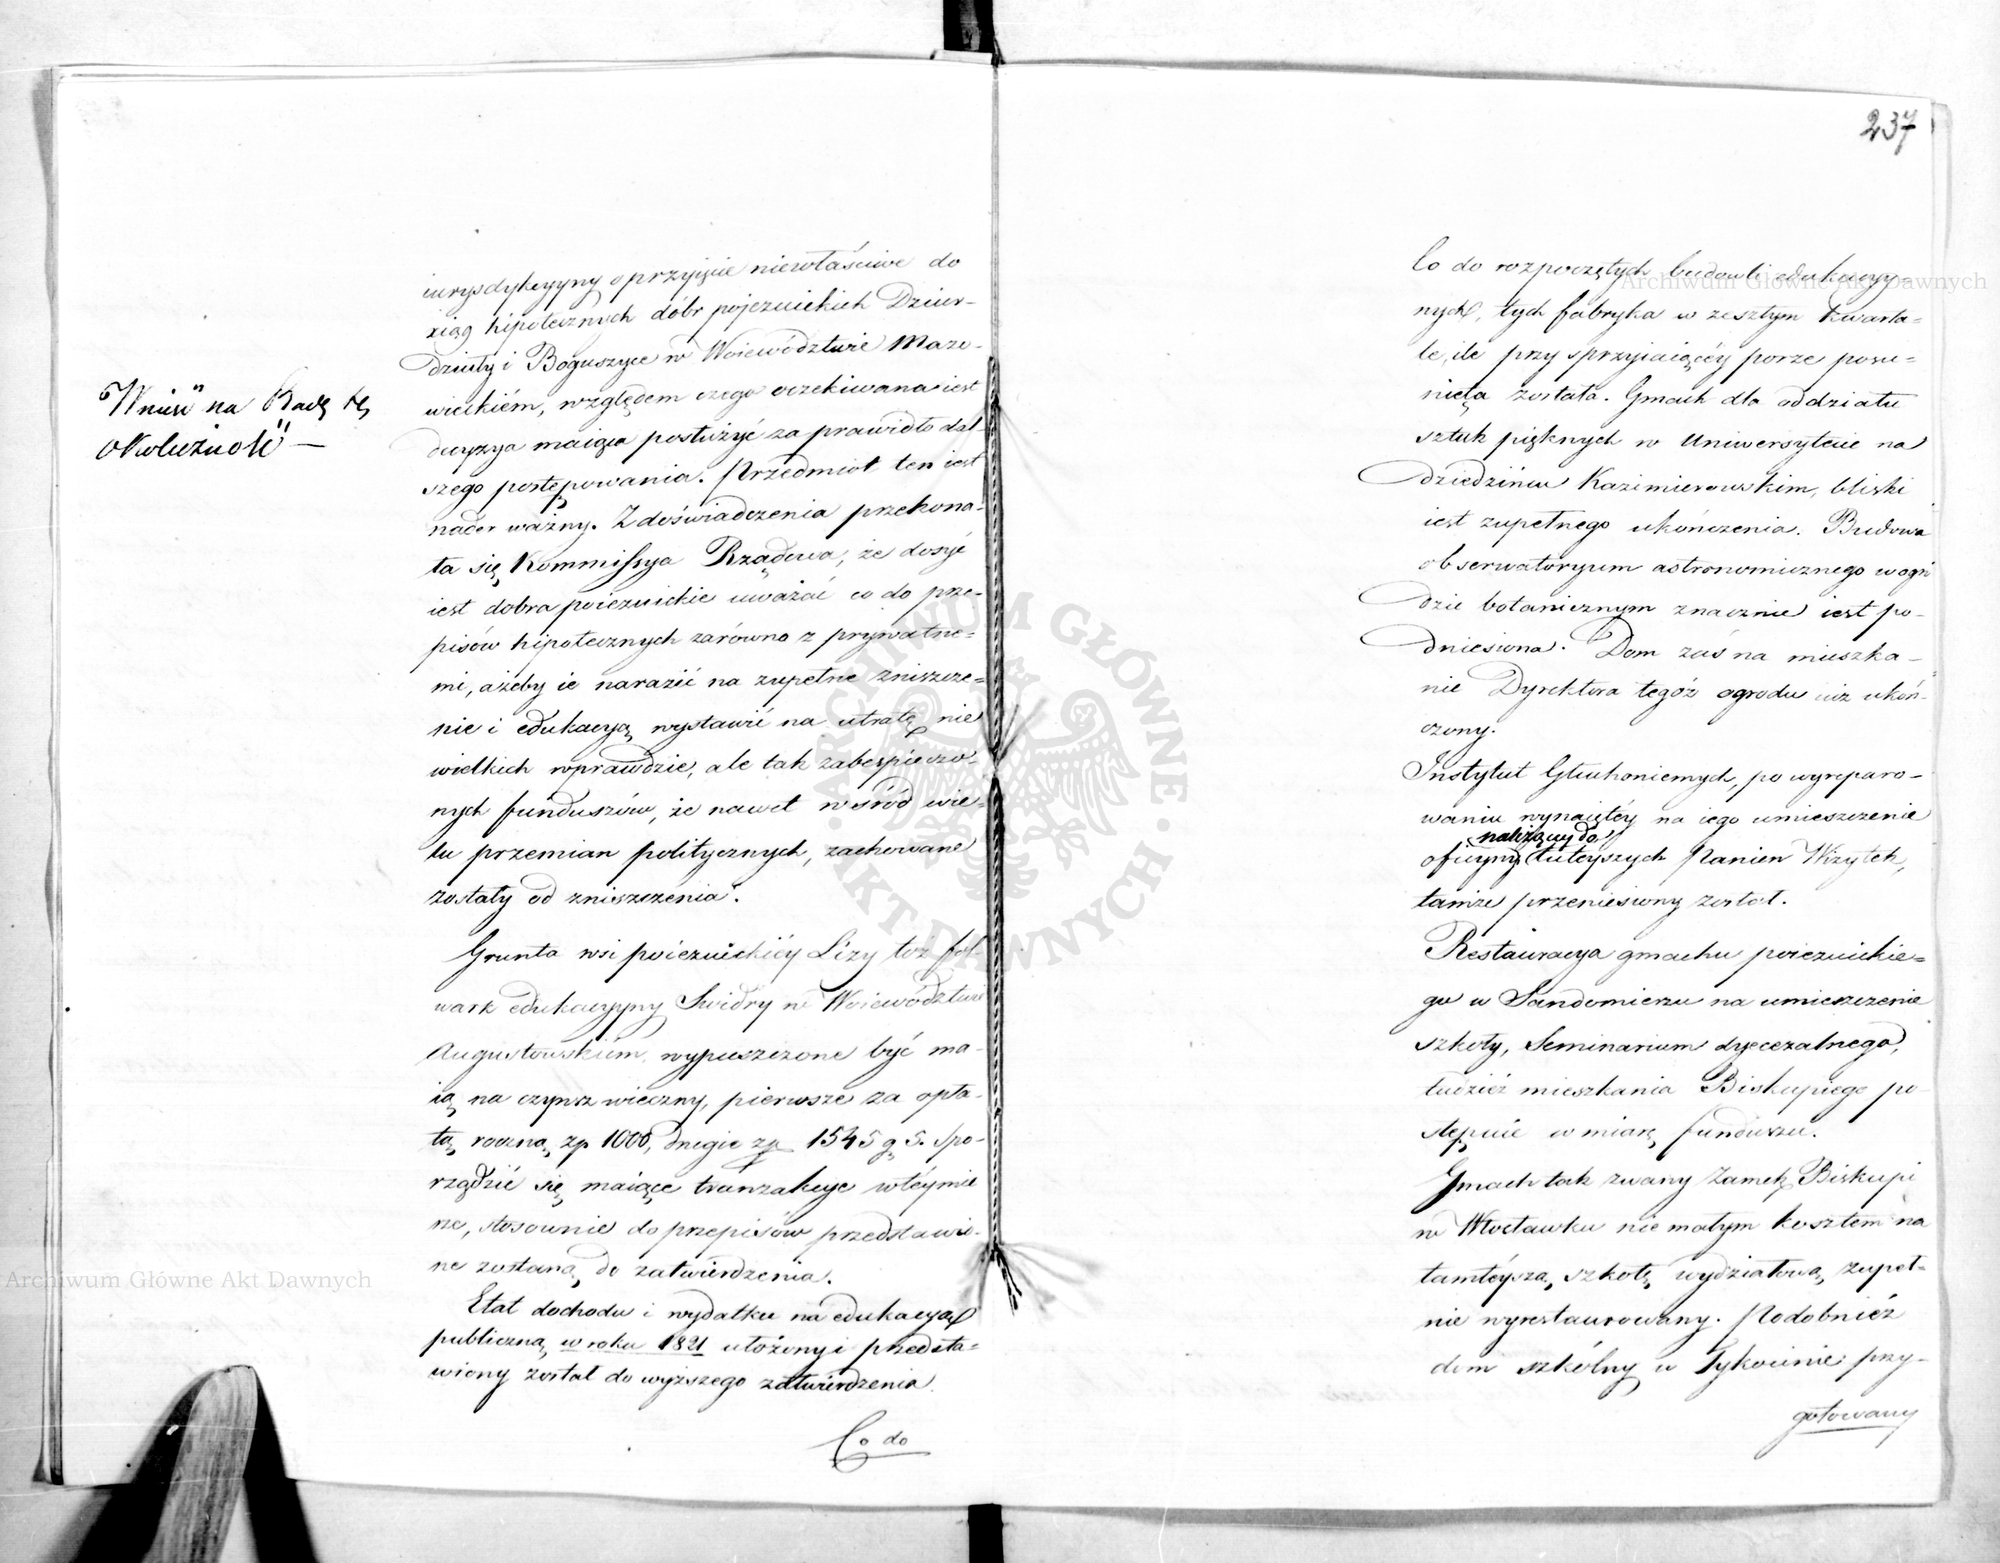 237
Wnieść na Radę tę
okoliczność —
iurysdykcyyny o przyięcie niewłaściwe do
xiąg hipotecznych dóbr pojezuickich Dzier-
dziuty i Boguszyce w Woiewództwie Mazo-
wieckiém, względem czego oczekiwana iest
decyzya maiąca posłużyć za prawidło dal
szego postępowania. Przedmiot ten iest
nader ważny. Z doświadczenia przekona-
ła się Kommissya Rządowa, że dosyć
iest dobra poiezuickie uważać co do prze-
pisów hipotecznych zarówno z prywatne-
mi, ażeby ie narazić na zupełne zniszcze-
nie i edukacyą wystawić na utratę nie
wielkich wprawdzie, ale tak zabezpieczo-
nych funduszów, że nawet wśród wie-
lu przemian politycznych, zachowane
zostały od zniszczenia.
Grunta wsi poiezuickiéy Lizy toż fol-
wark edukacyyny Swidry w Woiewództwie
Augustowskiém, wypuszczone być ma-
ią na czynsz wieczny, pierwsze za opła-
tą roczną zp 1000, drugie zp 1545 g 5. Spo-
rządzić się maiące tranzakcye w téymie
rze, stosownie do przepisów przedstawio-
ne zostaną do zatwierdzenia.
Etat dochodu i wydatku na edukacyą
publiczną w roku 1821 ułożony i przedsta-
wiony został do wyższego zatwierdzenia.
Co do
Co do rozpoczętych budowli edukacyy-
nych, tych fabryka w zeszłym kwarta-
le, ile przy sprzyiaiącéy porze posu-
nięta została. Gmach dla oddziału
sztuk pięknych w Uniwersytecie na
dziedzińcu Kazimierowskim, bliski
iest zupełnego ukończenia. Budowa
observatoryum astronomicznego w ogro
dzie botanicznym znacznie iest po-
dniesiona. Dom zaś na mieszka-
nie Dyrektora tegoż ogrodu iuż ukoń-
czony.
Instytut Głuchoniemych, po wyreparo-
waniu wynaiętéy na iego umieszczenie
należącey do
oficyny tuteyszych Panien Wizytek,
tamże przeniesiony został.
Restauracya gmachu poiezuickie-
go w Sandomierzu na umieszczenie
szkoły, Seminarium dyecezalnego,
tudzież mieszkania Biskupiego po
stępuie w miarę funduszu.
Gmach tak zwany Zamek Biskupi
w Włocławku nie małym kosztem na
tamtéyszą szkołę wydziałową zupeł-
nie wyrestaurowany. Podobnież
dom szkólny w Tykocinie przy-
gotowany
Archiwum Główne Akt Dawnych
Archiwum Główne Akt Dawnych
ARCHIWUM GŁÓWNE · AKT DAWNYCH ·